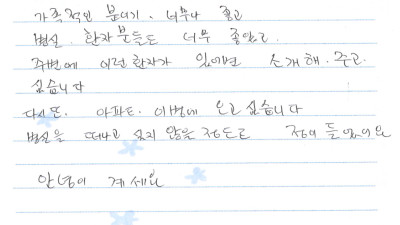 가족적인 분위기. 너무나 좋고
병실. 환자분들도 너무 좋았고.
주변에 이런환자가 있으면 소개해. 주고.
싶습니다
다시또. 아파도. 이병에 오고싶습니다
병실을 떠나고 싶지 않을정도로 정이 들었어요
안녕이 계세요